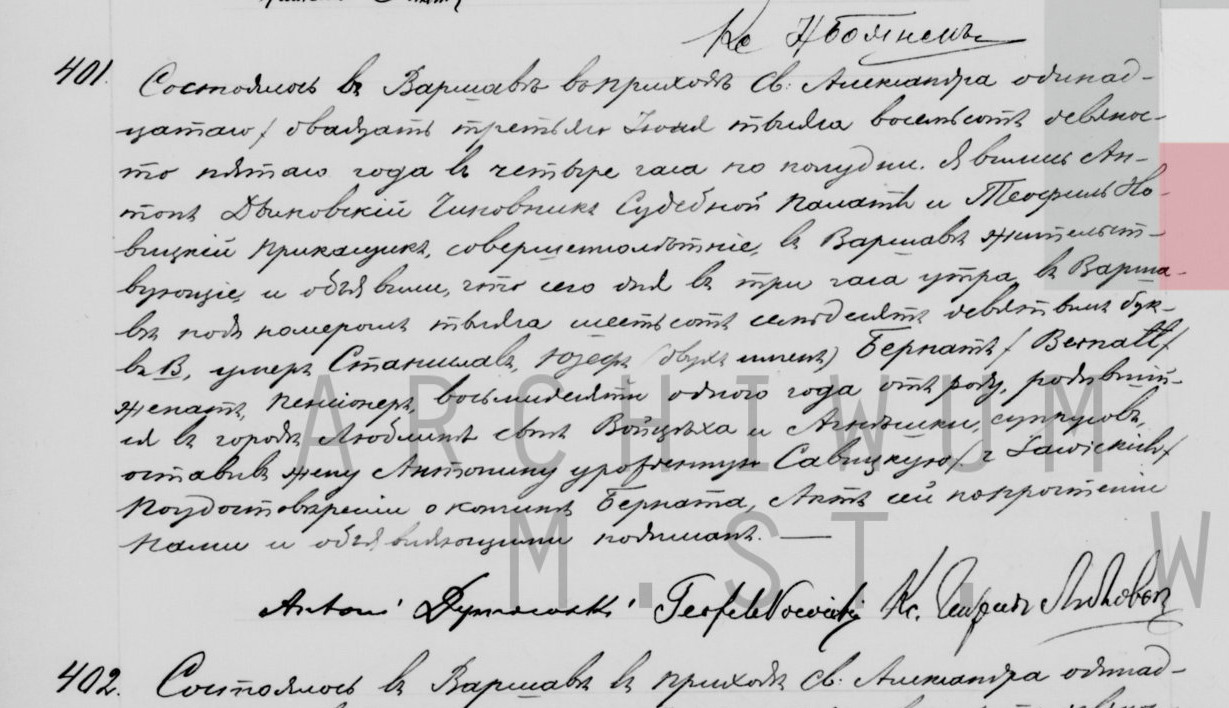 Кс
401. Состоялось въ Варшавѣ въ приходѣ Св: Александра одинад-
цатаго / двадцать третьяго Іюня тысяча восемьсотъ девянос-
то пятаго года въ четыре часа по полудни. Явились Ан-
тонъ Дымовскій Чиновникъ Судебной Палаты и Теофиль Но-
вицкій Прикащикъ, совершеннолѣтніе, въ Варшавѣ жительст-
вующіе, и объявили, что сего дня въ три часа утра, въ Варша-
вѣ подъ номеромъ тысяча шестьсотъ семьдесятъ девятымъ бук-
ва В, умеръ Станиславъ, Юзефъ (двухъ именъ) Бернатъ / Bernatt /
женатъ, Пенсіонеръ, восьмидесяти одного года отъ роду, родивший-
ся въ городѣ Люблинѣ сынъ Войцѣха и Агнѣшки, супруговъ,
оставивъ жену Антонину урожденную Савицкую / z Sawickich /
По удостовѣреніи о кончинѣ Берната, Актъ сей по прочтеніи
Нами и объявляющими подписанъ. —
Antoni Dymowski Teofil Nowicki Кс.
ARCHIWUM
M.ST.W
402. Состоялось въ Варшавѣ въ приходѣ Св. Александра одинад-